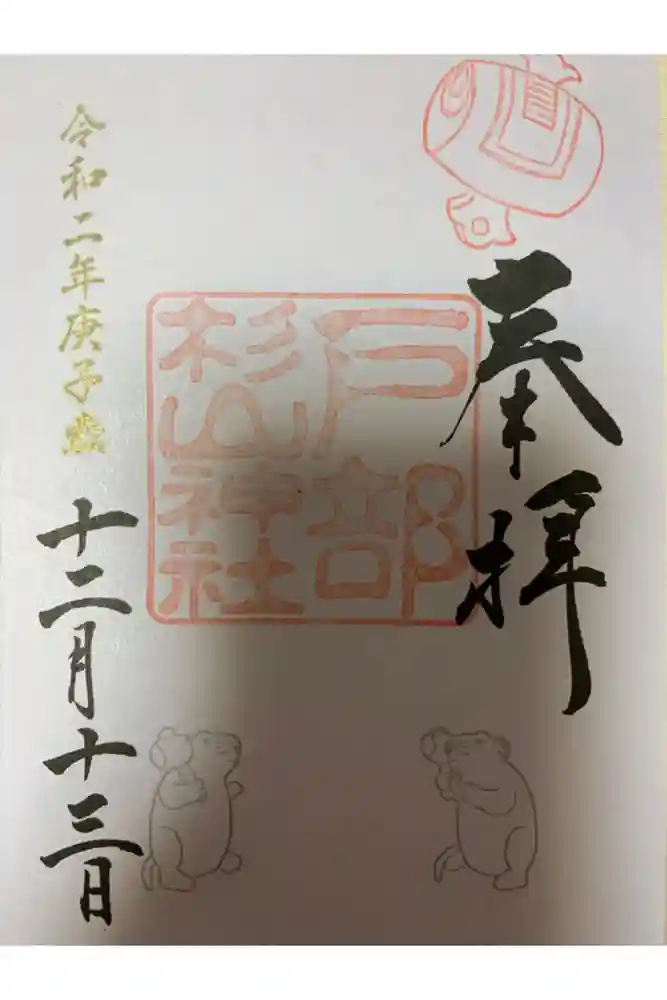 奉拝
戸部
杉山神社
令和二年庚子歳
十二月十三日